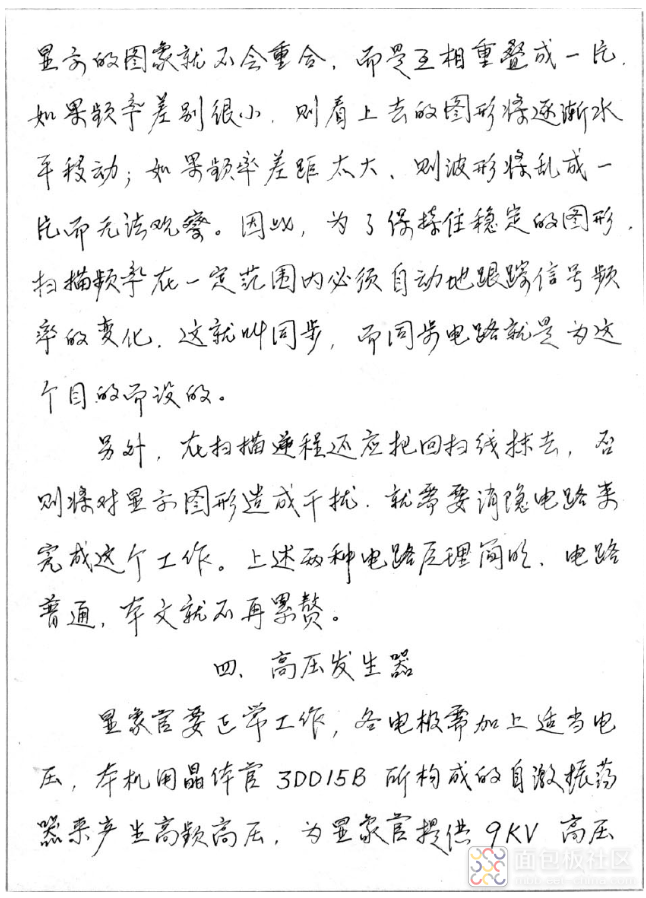 显示的图象就不会重合，而是互相重叠成一片.
如果频率差别很小．则看上去的图形将逐渐水
平移动；如果频率差距太大、则波形将乱成一
片而无法观察。因此，为了保持住稳定的图形，
扫描频率在一定范围内必须自动地跟踪信号频
率的变化．这就叫同步，而同步电路就是为这
个目的而设的。
另外，在扫描逆程还应把回扫线抹去，否
则将对显示图形造成干扰．就需要消隐电路来
完成这个工作。上述两种电路原理简明、电路
普通，本文就不再累赘。
四、高压发生器
显象官要正常工作，各电极需加上适当电
压，本机用晶体官3DD15B所构成的自激振荡
器来产生高频高压，为显象官提供9KV 高压
面包板社区
mbb.eet-china.com